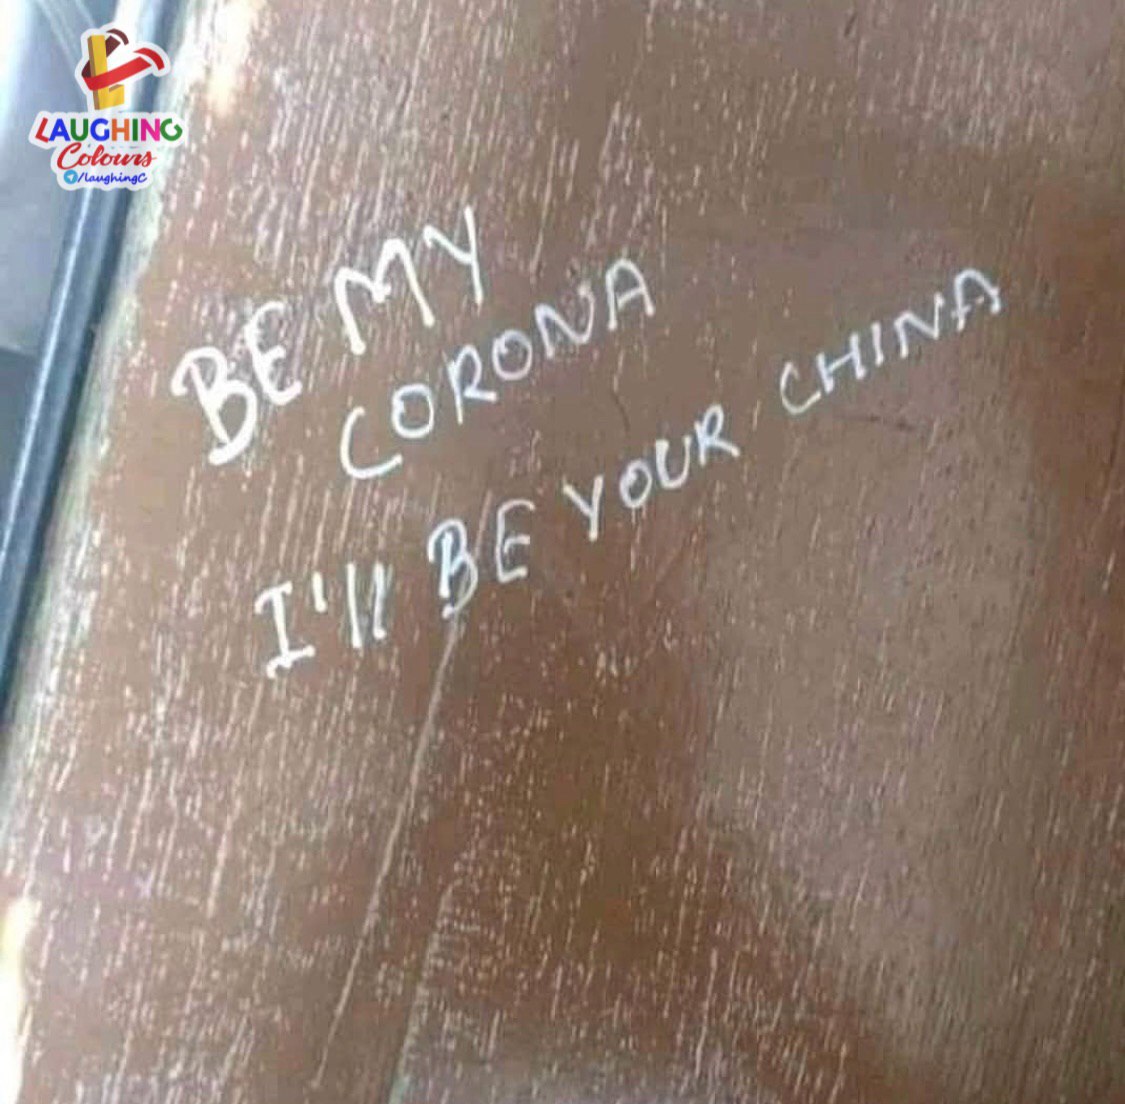 LAUGHING
Colours
/laughingC
BE MY
CORONA
I'll BE YOUR CHINA